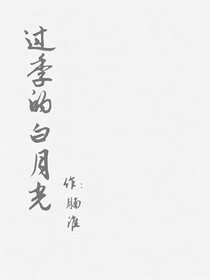 过季的白月光
作：腼淮